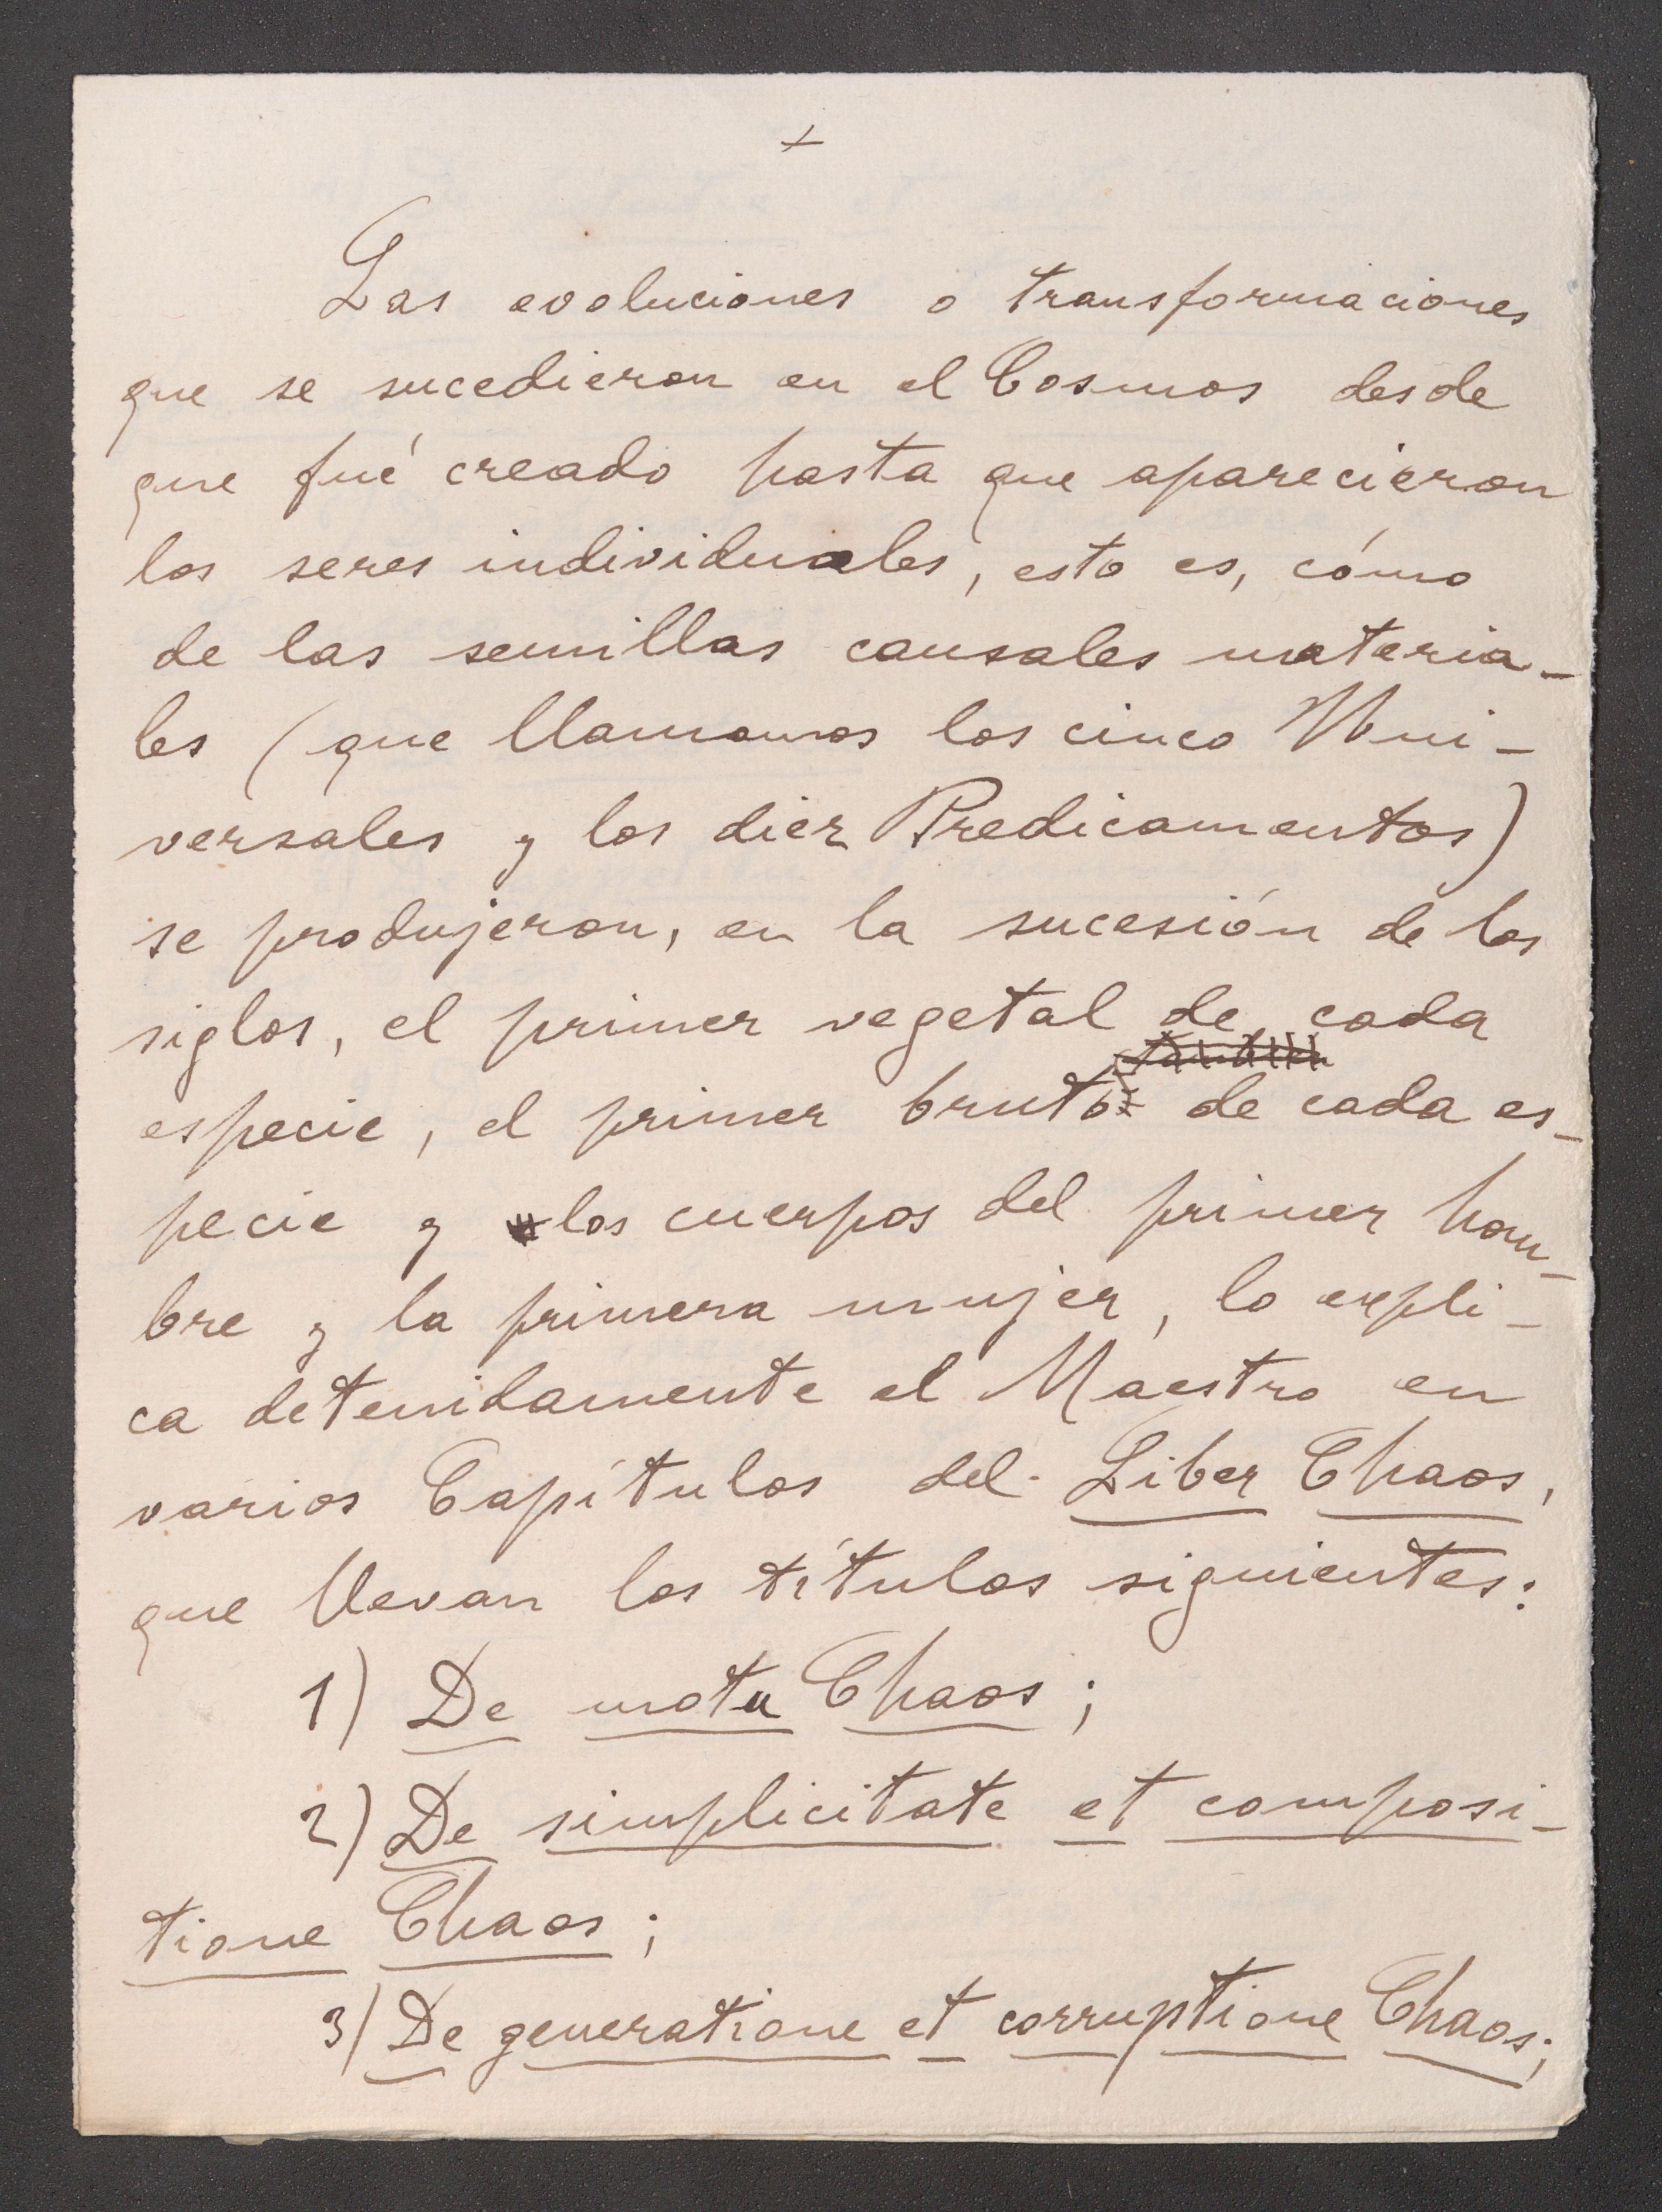 +
Las evoluciones o transformaciones
que se sucedieron en el Cosmos desde
que fué creado hasta que aparecieron
los seres individuales, esto es, cómo
de las semillas causales materia-
les (que llamamos los cinco Uni-
versales y los diez Predicamentos)
se produjeron, en la sucesión de los
siglos, el primer vegetal de cada
especie, el primer bruto de cada es-
pecie y los cuerpos del primer hom-
bre y la primera mujer, lo expli-
ca detenidamente el Maestro en
varios Capítulos del Liber Chaos,
que llevan los títulos siguientes:
1) De motu Chaos;
2) De simplicitate et composi-
tione Chaos;
3) De generatione et corruptione Chaos;